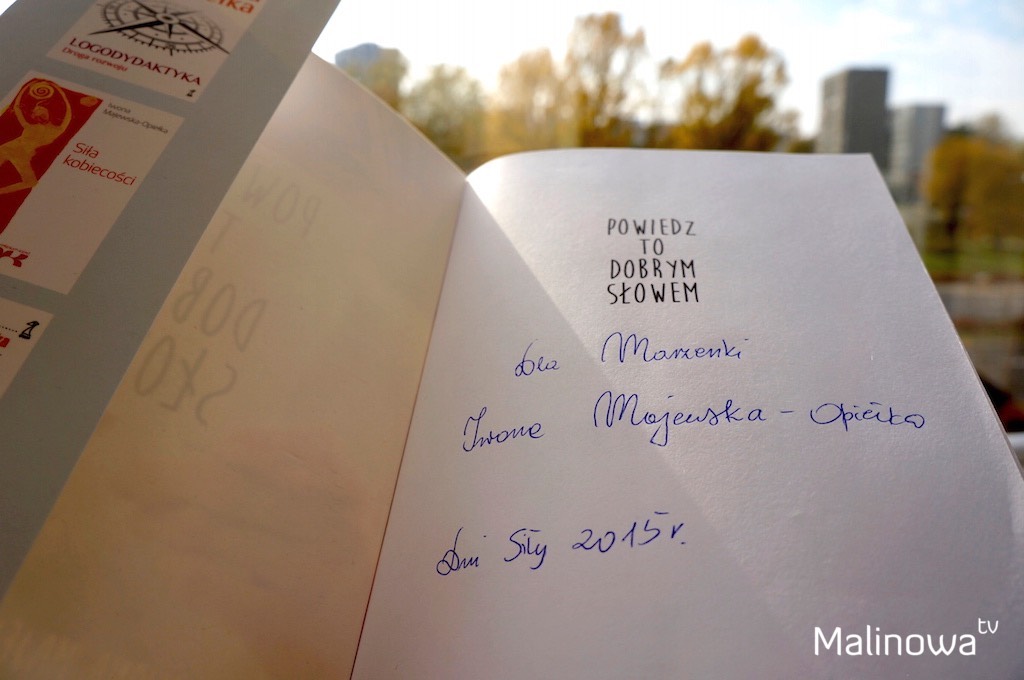 LOGODYDAKTYKA
Droga rozwoju
Iwona
Majewska-Opiełka
Siła
kobiecości
POWIEDZ
TO
DOBRYM
SŁOWEM
Dla Marzenki
Iwona Majewska-Opiełka
Dni Siły 2015 r.
Malinowa tv